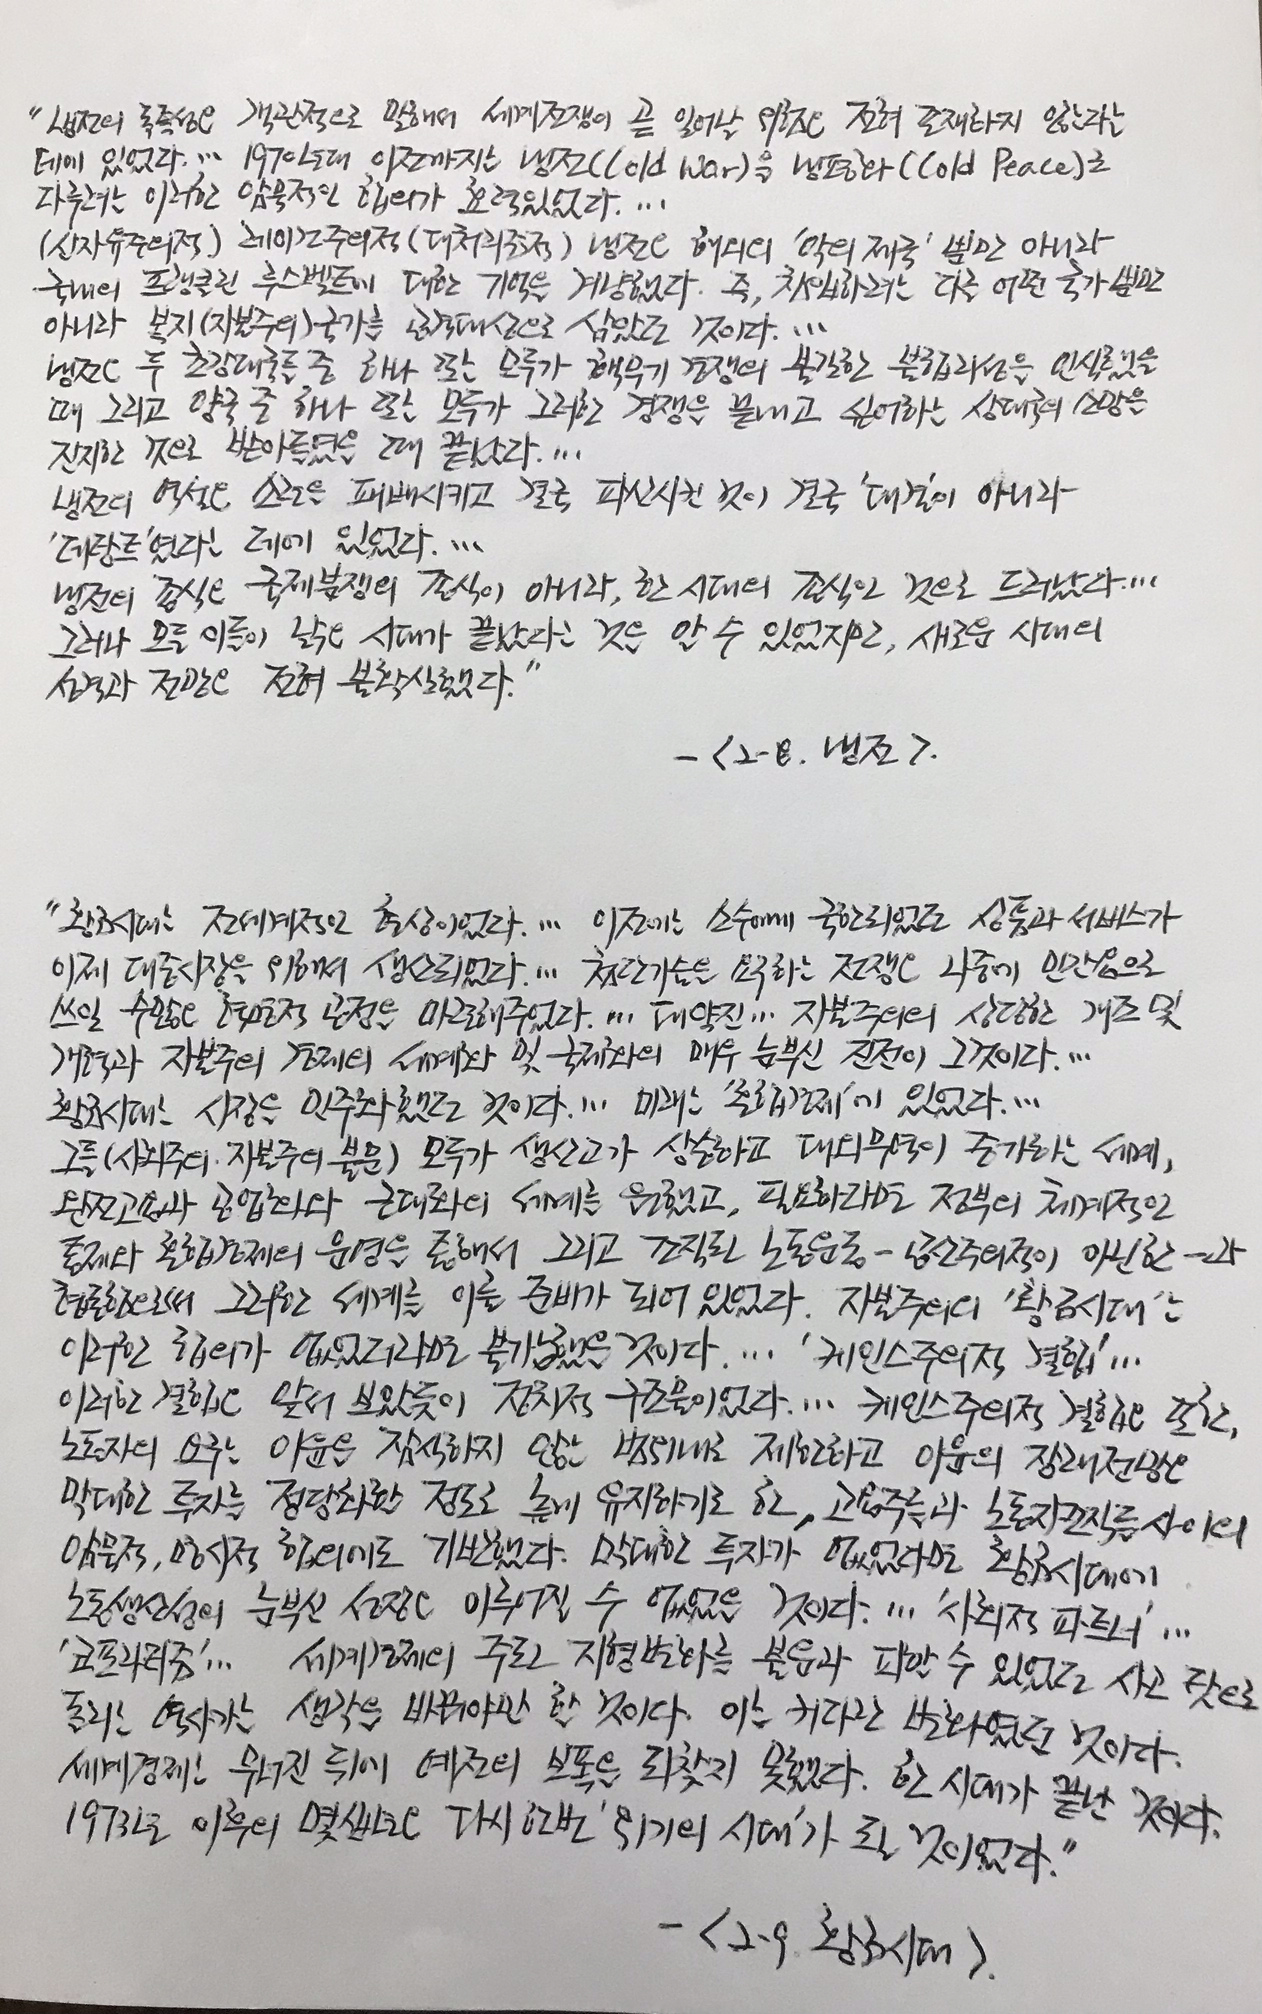 "냉전의 독특성은 객관적으로 말해서 세계전쟁이 곧 일어날 위험은 전혀 존재하지 않는다는
데에 있었다.… 1970년대 이전까지는 냉전(Cold War)을 냉평화(Cold Peace)로
다루려는 이러한 암묵적인 합의가 효력있었다.…
(신자유주의적) 레이건주의적(대처리즘적) 냉전은 해외의 '악의 제국' 뿐만 아니라
국내의 프랭클린 루스벨트에 대한 기억을 겨냥했다. 즉, 침입하려는 다른 어떤 국가 뿐만
아니라 복지(자본주의)국가를 공격대상으로 삼았던 것이다.…
냉전은 두 초강대국들 중 하나 또는 모두가 핵무기 경쟁의 불길한 불합리성을 인식했을
때 그리고 양국 중 하나 또는 모두가 그러한 경쟁을 끝내고 싶어하는 상대국의 소망을
진지한 것으로 받아들였을 때 끝났다.…
냉전의 역설은 소련을 패배시키고 결국 파산시킨 것이 결국 '대결'이 아니라
'데탕트'였다는 데에 있었다.…
냉전의 종식은 국제분쟁의 종식이 아니라, 한 시대의 종식인 것으로 드러났다.…
그러나 모든 이들이 낡은 시대가 끝났다는 것은 알 수 있었지만, 새로운 시대의
성격과 전망은 전혀 불확실했다."
-<2-8. 냉전>.
"황금시대는 전세계적인 현상이었다.… 이전에는 소수에게 국한되었던 상품과 서비스가
이제 대중시장을 위해서 생산되었다.… 첨단기술을 요구하는 전쟁은 나중에 민간용으로
쓰일 수많은 혁명적 공정을 마련해주었다.… 대약진… 자본주의의 상당한 개조 및
개혁과 자본주의 경제의 세계화 및 국제화의 매우 눈부신 진전이 그것이다.…
황금시대는 시장을 민주화했던 것이다.… 미래는 '혼합경제'에 있었다.…
그들(사회주의·자본주의 불문) 모두가 생산고가 상승하고 대외무역이 증가하는 세계,
완전고용과 공업화와 근대화의 세계를 원했고, 필요하다면 정부의 체계적인
통제와 혼합경제의 운영을 통해서 그리고 조직된 노동운동-공산주의적이 아닌한-과
협력함으로써 그러한 세계를 이룰 준비가 되어 있었다. 자본주의의 '황금시대'는
이러한 합의가 없었더라면 불가능했을 것이다.… '케인스주의적 결합'…
이러한 결합은 앞서 보았듯이 정치적 구조물이었다.… 케인스주의적 결합은 또한,
노동자의 요구는 이윤을 잠식하지 않는 범위내로 제한하고 이윤의 장래전망은
막대한 투자를 정당화할 정도로 높게 유지하기로 한, 고용주들과 노동자조직들 사이의
암묵적, 명시적 합의에도 기반했다. 막대한 투자가 없었다면 황금시대에
노동생산성의 눈부신 성장은 이루어질 수 없었을 것이다.… '사회적 파트너'…
'코포라티즘'… 세계경제의 주된 지형변화를 불운과 피할 수 있었던 사고 탓으로
돌리는 역사가는 생각을 바꿔야만 할 것이다. 이는 커다란 변화였던 것이다.
세계경제는 무너진 뒤에 예전의 보폭을 되찾지 못했다. 한 시대가 끝난 것이다.
1973년 이후의 몇십년은 다시한번 '위기의 시대'가 될 것이었다."
-<2-9. 황금시대>.